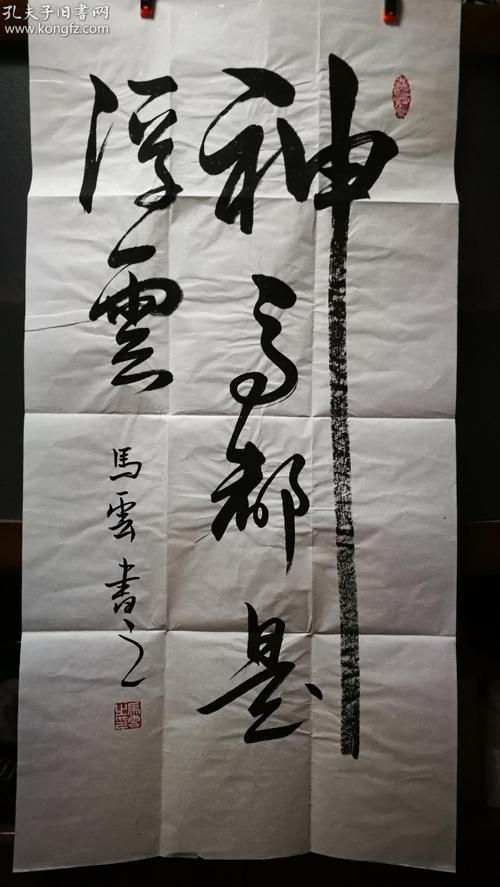 孔夫子旧书网
www.kongfz.com
神马都是
浮雲
馬雲書之